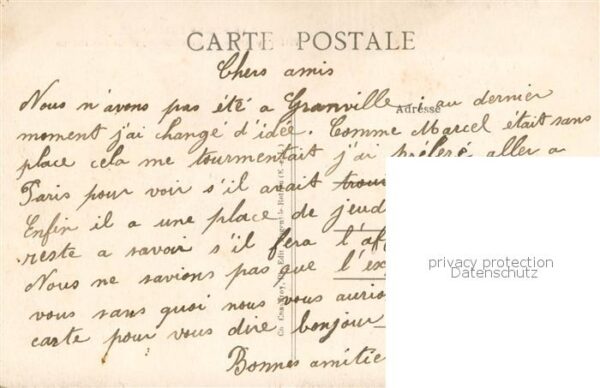 CARTE POSTALE
Chers amis
Nous n'avons pas été a Granville, au dernier
Adresse
moment j'ai changé d'idée. Comme Marcel était sans
place cela me tourmentait j'ai préféré aller a
Paris pour voir s'il avait trou
Enfin il a une place de jeud
reste a savoir s'il fera l'af
Nous ne savions pas que l'ex
vous sans quoi nous vous aurio
carte pour vous dire bonjour
Bonnes amitie
privacy protection
Datenschutz